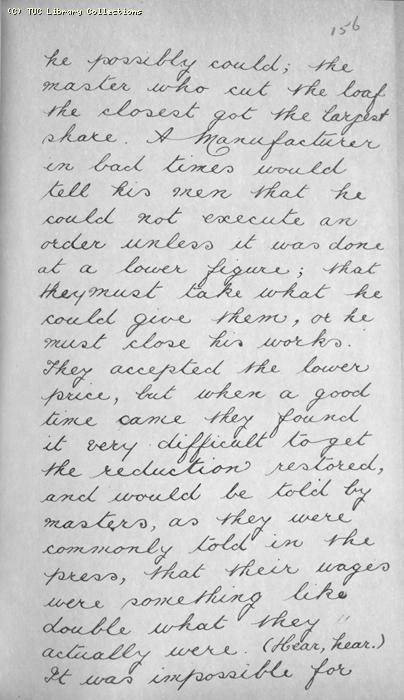 (C) TUC Library Collections
156
he possibly could; the
master who cut the loaf
the closest got the largest
share. A Manufacturer
in bad times would
tell his men that he
could not execute an
order unless it was done
at a lower figure; that
they must take what he
could give them, or he
must close his works.
They accepted the lower
price, but when a good
time came they found
it very difficult to get
the reduction restored,
and would be told by
masters, as they were
commonly told in the
press, that their wages
were something like
double what they
actually were. (Hear, hear.)
It was impossible for